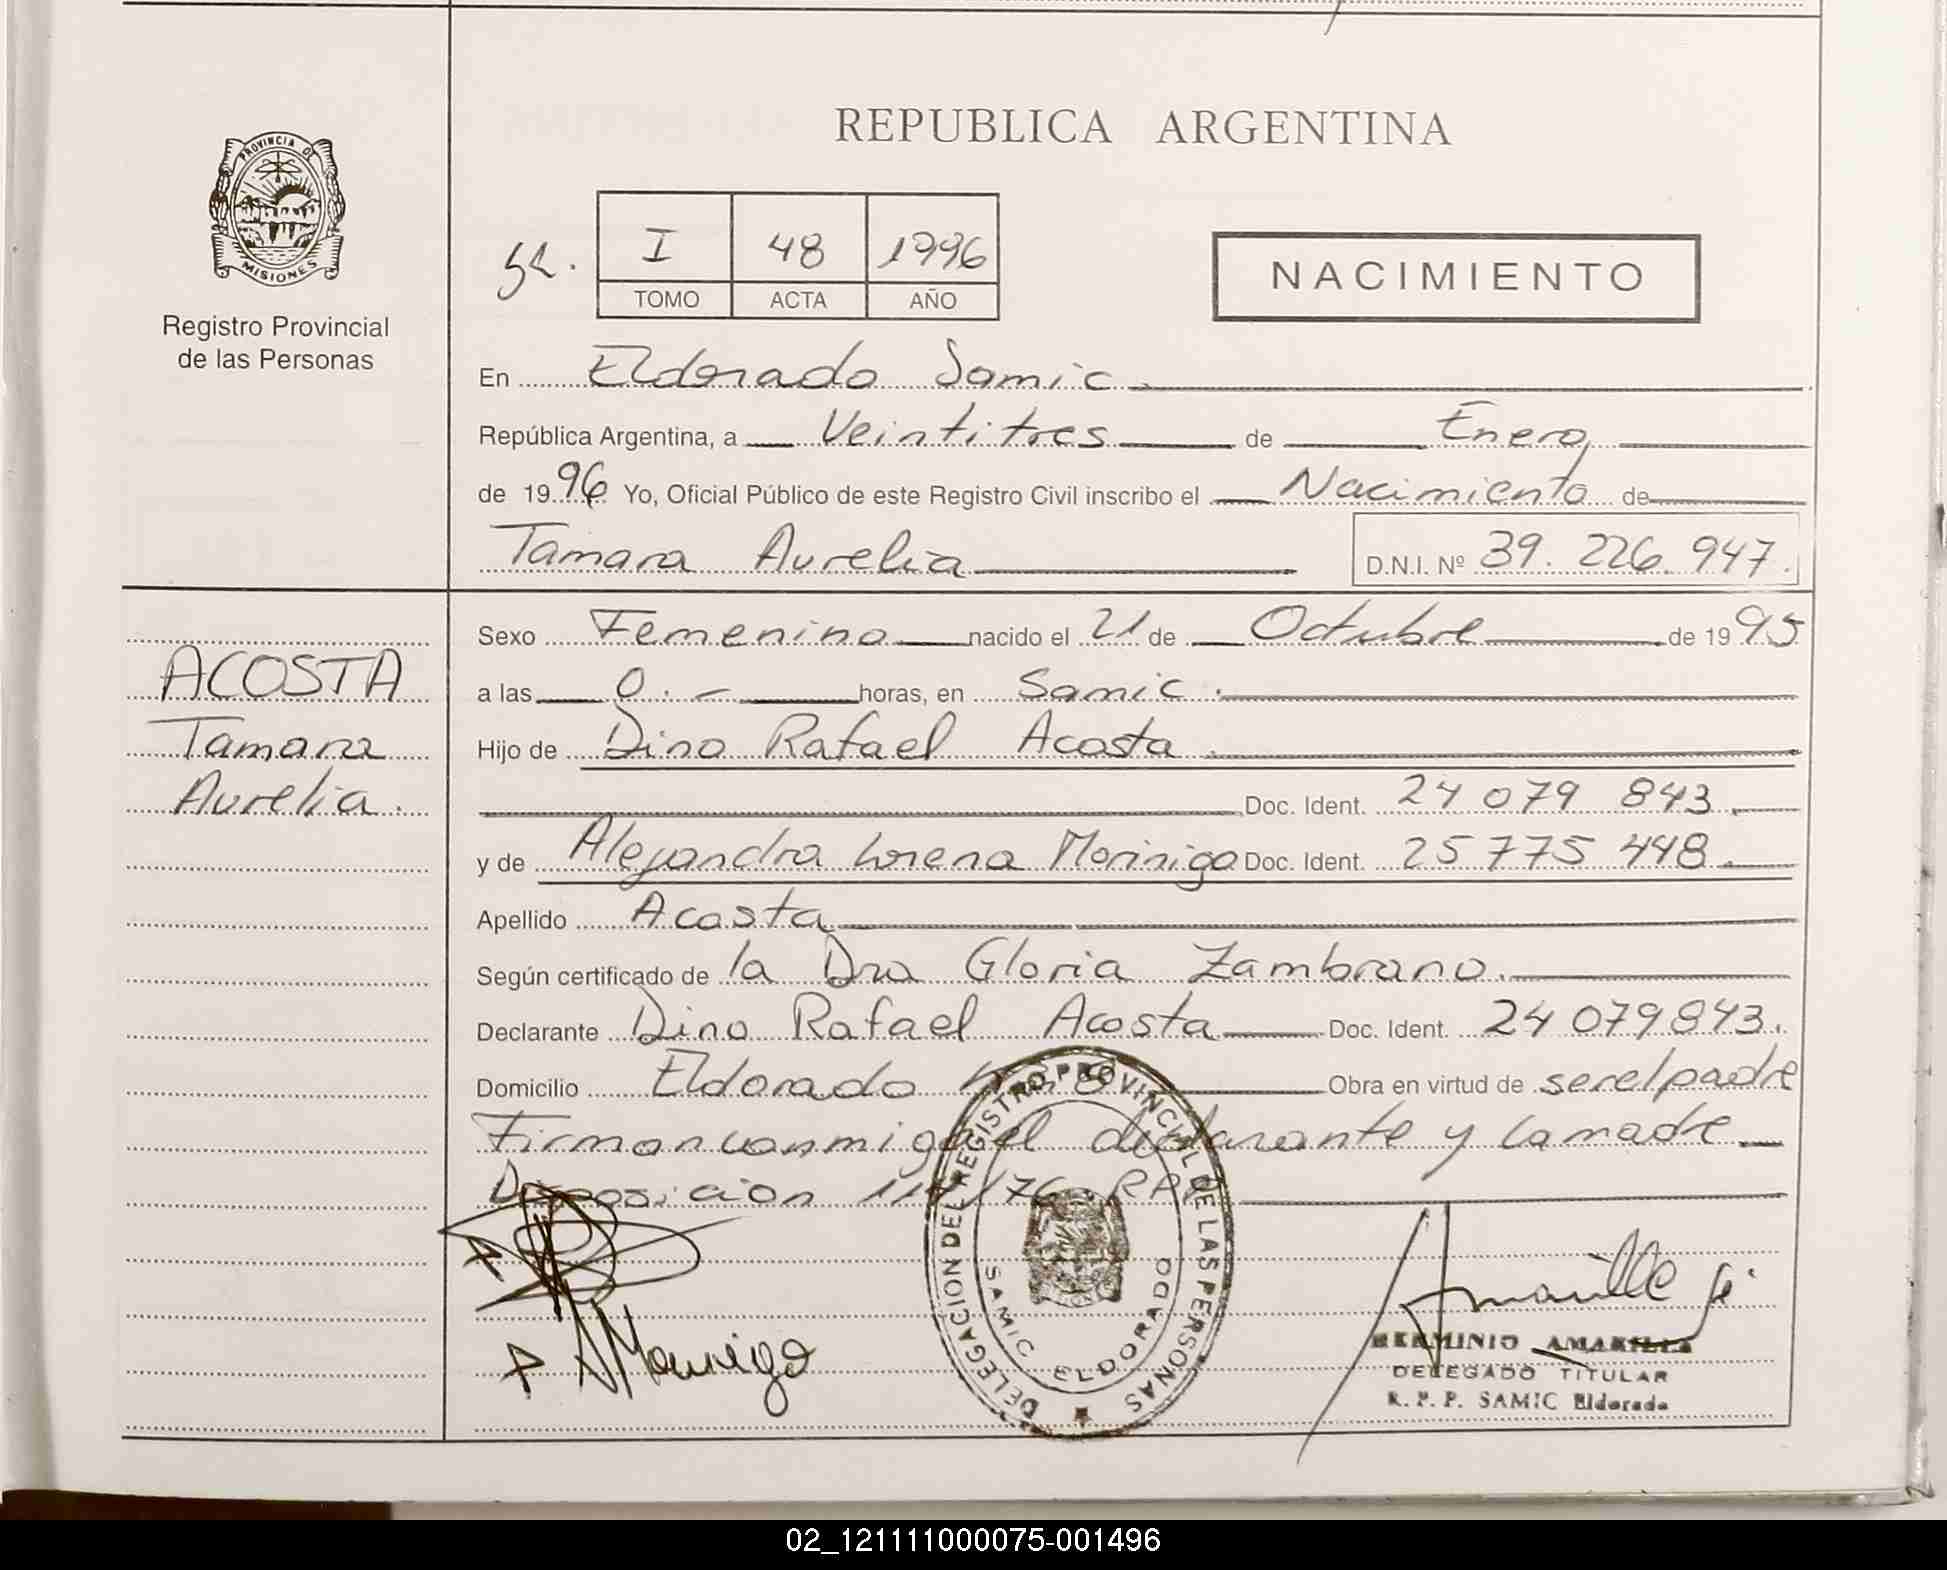 REPUBLICA ARGENTINA
PROVINCIA DE
MISIONES
Registro Provincial
de las Personas
I 48 1996
TOMO ACTA AÑO
NACIMIENTO
En Eldorado Samic.
República Argentina, a Veintitres de Enero,
de 1996 Yo, Oficial Público de este Registro Civil inscribo el Nacimiento de
Tamara Aurelia D.N.I. Nº 39.226.947.
ACOSTA
Tamara
Aurelia.
Sexo Femenino nacido el 21 de Octubre de 1995
a las 0.- horas, en Samic.
Hijo de Dino Rafael Acosta.
Doc. Ident. 24 079 843.
y de Alejandra Lorena Morinigo Doc. Ident. 25 775 448.
Apellido Acosta
Según certificado de la Dra Gloria Zambrano.
Declarante Dino Rafael Acosta Doc. Ident. 24 079 843.
Domicilio Eldorado Km 8 Obra en virtud de ser el padre
Firman conmigo el declarante y la madre
Disposicion RPP
DELEGACION DEL REGISTRO PROVINCIAL DE LAS PERSONAS
SAMIC ELDORADO
A Morinigo
HERMINIO AMARILLA
DELEGADO TITULAR
R. P. P. SAMIC Eldorado
02_121111000075-001496